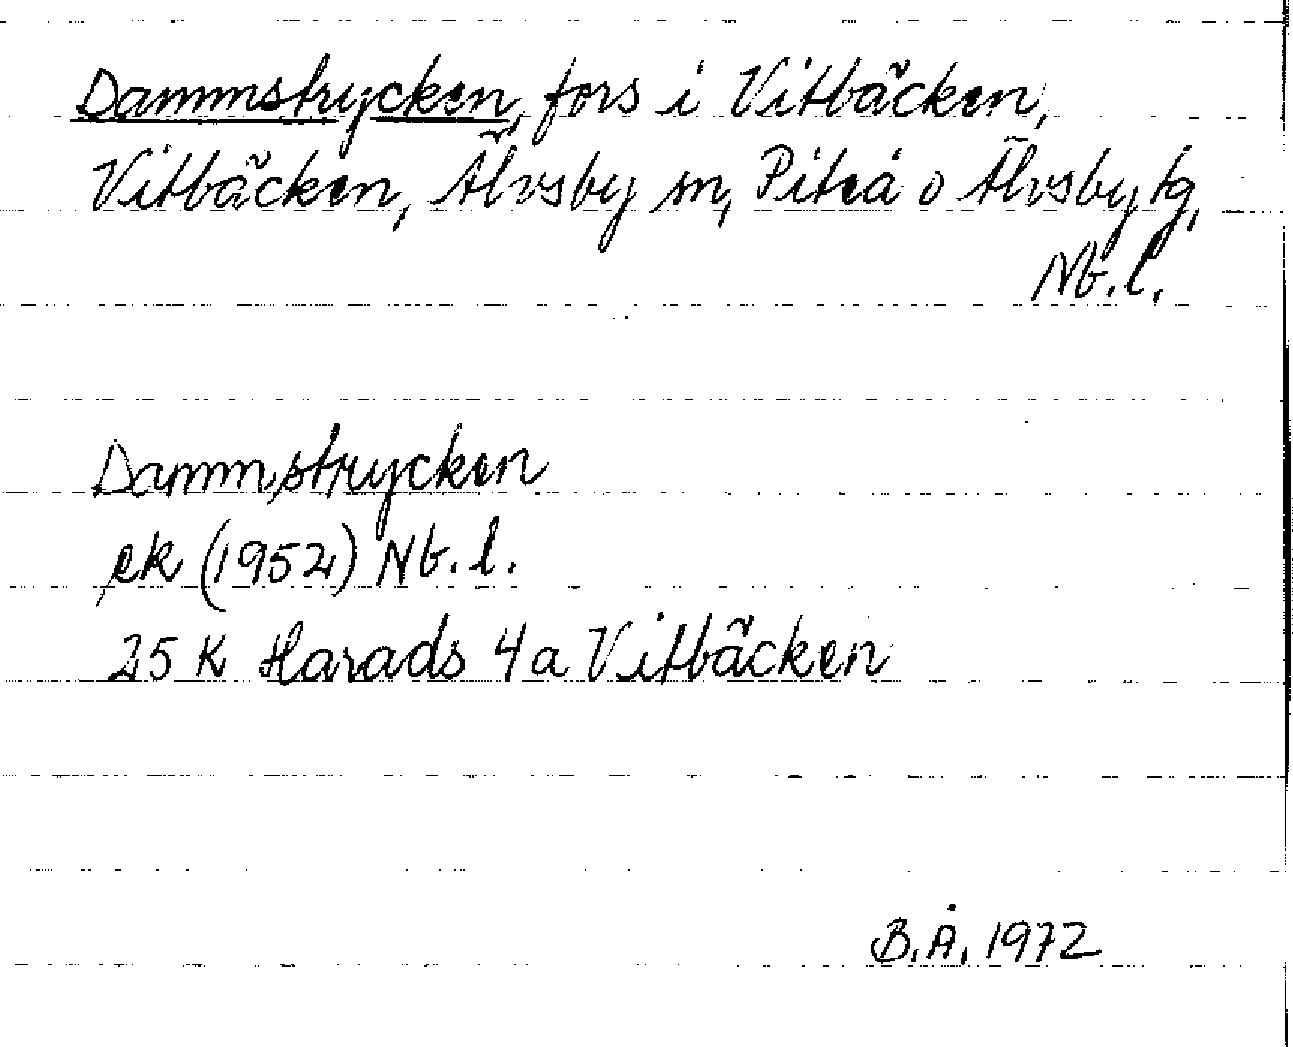 Dammstrycken, fors i Vitbäcken,
Vitbäcken, Älvsby sn, Piteå o Älvsby tg,
Nb.l.
Dammstrycken
ek (1952) Nb.l.
25 K Harads 4a Vitbäcken
B.Å. 1972